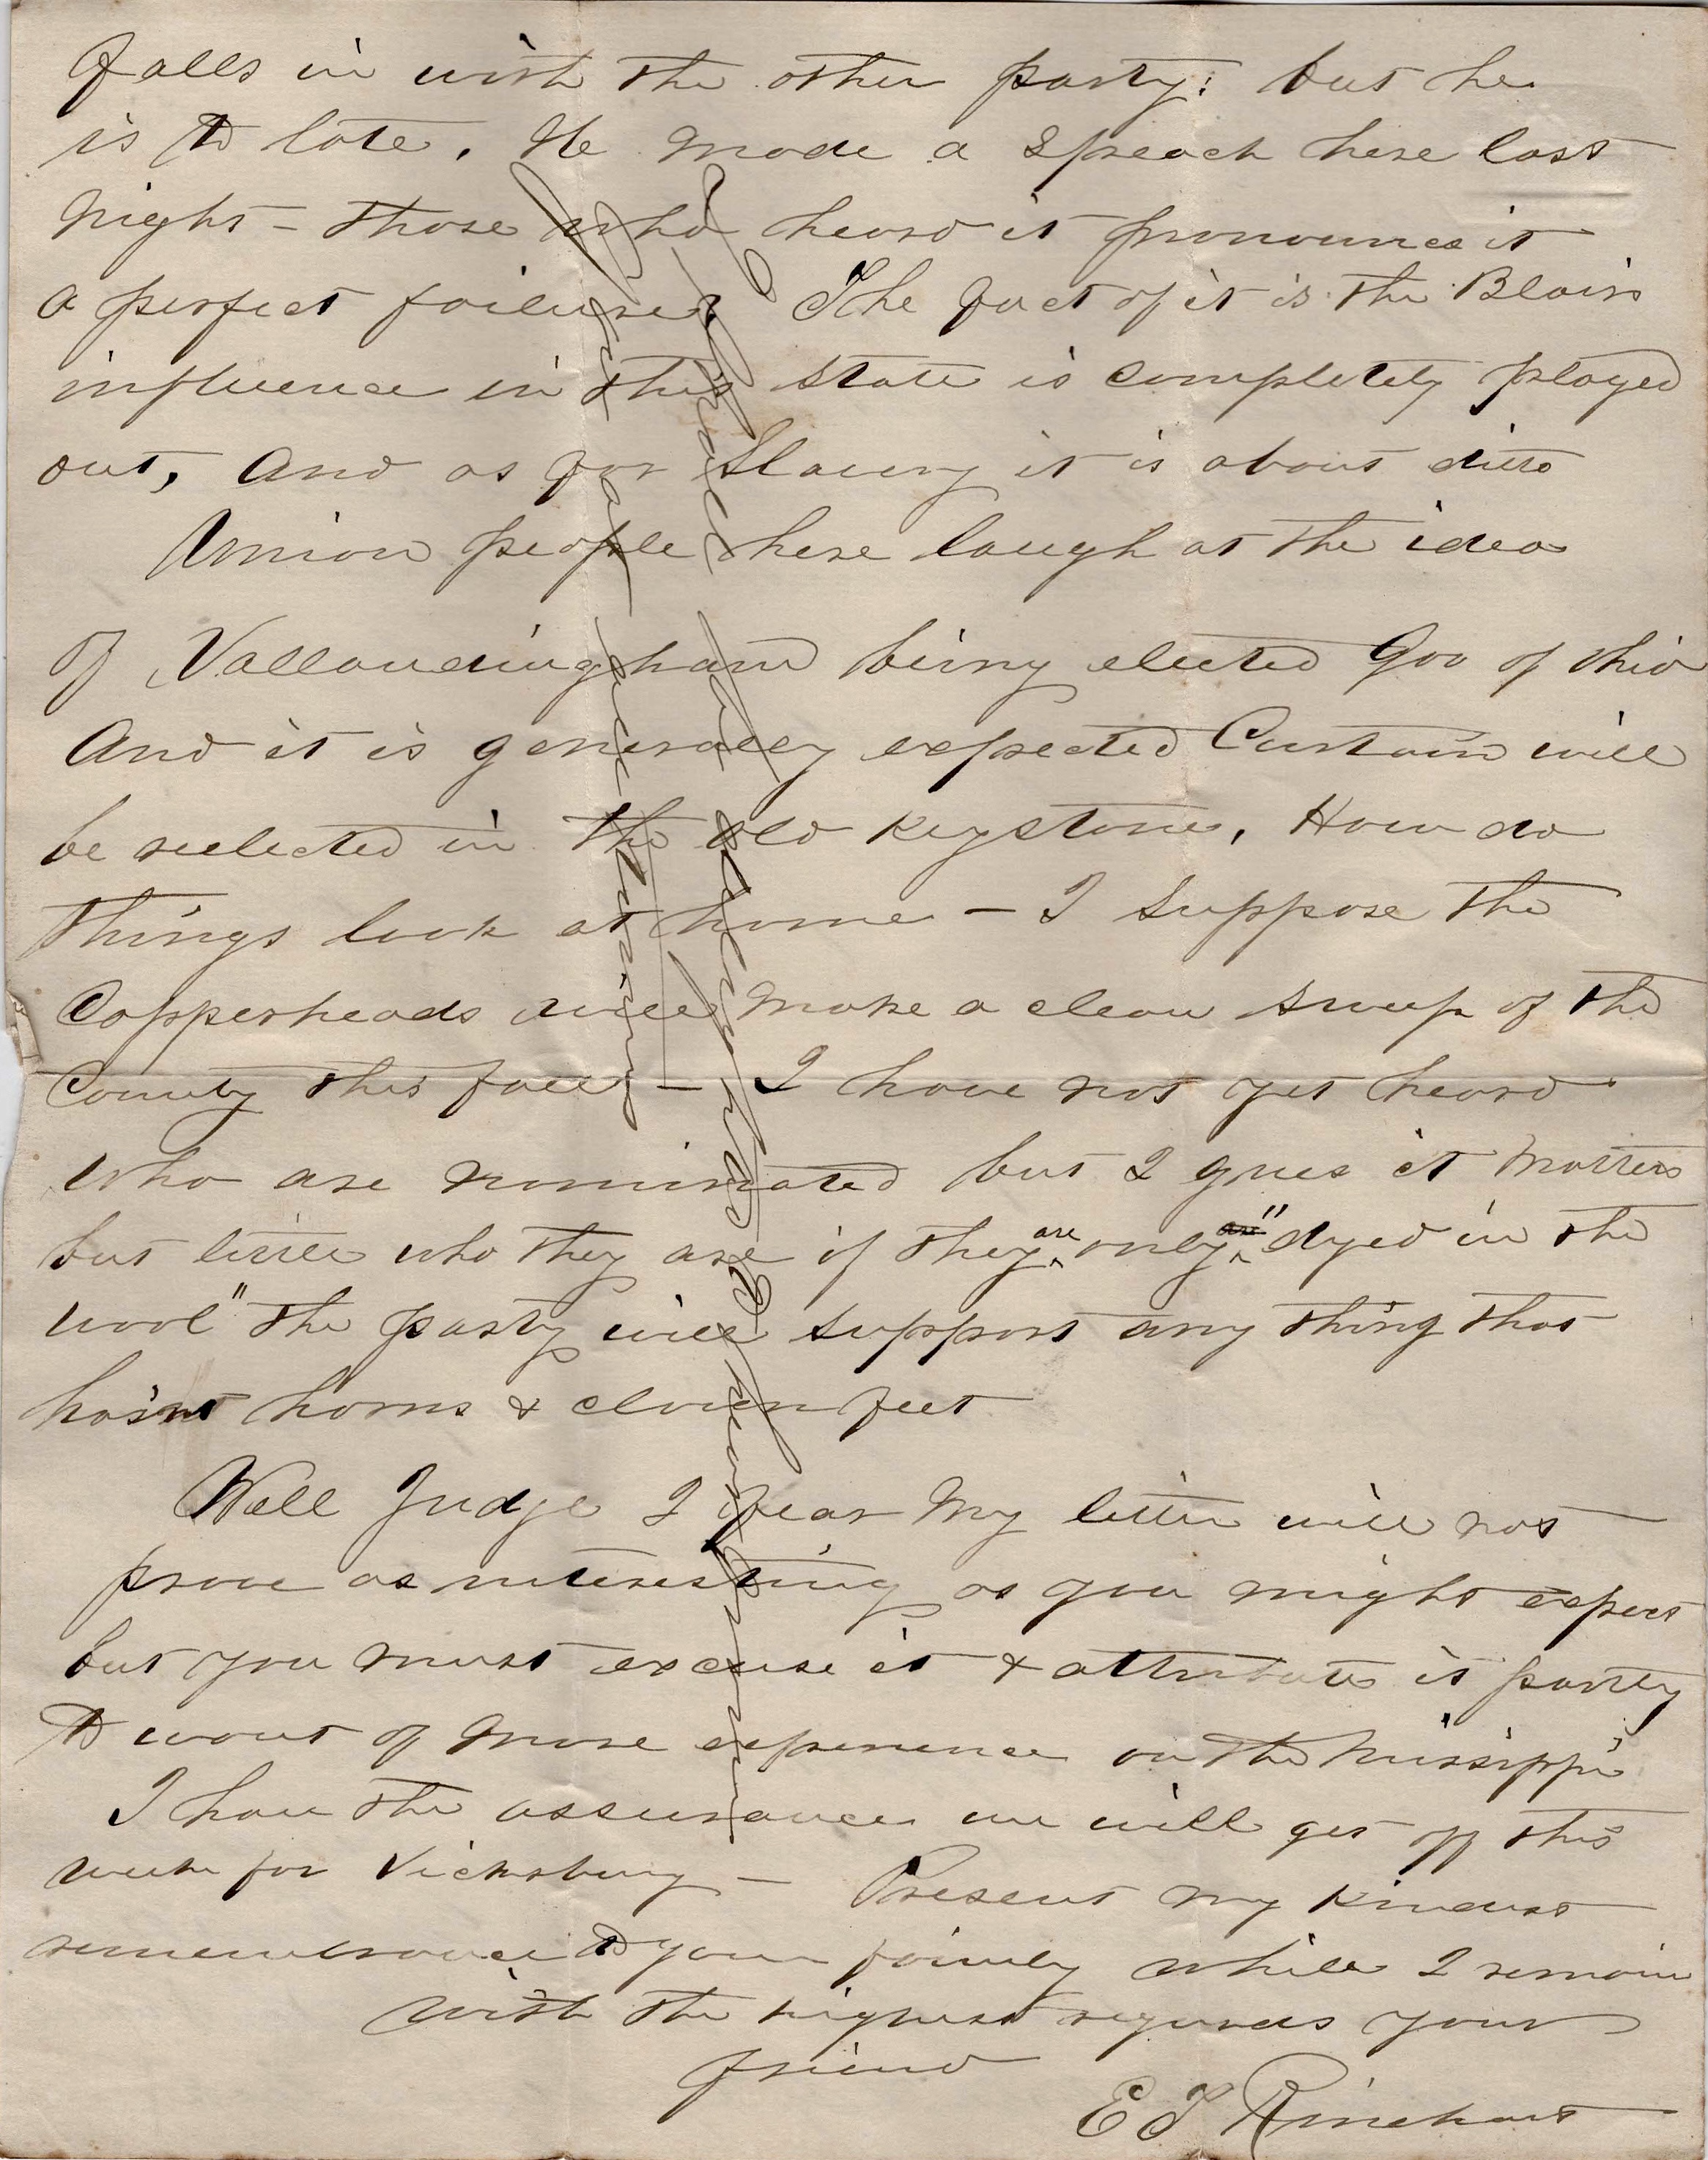 falls in with the other party: but he
is to late. He made a speach here last
night – those who heard it pronounce it
a perfect failure. The fact of it is the Blair
influence in this State is completely played
out, and as for Slavery it is about ditto
Union people here laugh at the idea
of Vallandingham being elected Gov of Ohio
And it is generally expected Curtain will
be reelected in the old keystone, How do
things look at home – I suppose the
Copperheads will make a clean sweep of the
County this fall – I have not yet heard
who are nominated but I gues it matters
but little who they are if they are only are "dyed in the
wool" the party will support any thing that
has'nt horns & cloven feet
Well Judge I fear my letter will not
prove as interesting as you might expect
but you must excuse it & attribute it partly
to want of more experience on the Missippi
I have the assurance we will get off this
week for Vicksburg – Present my kindest
remembrance to your family while I remain
with the highest regards your
friend
E J Rinehart
I shall be at Memphis &
if you are writing